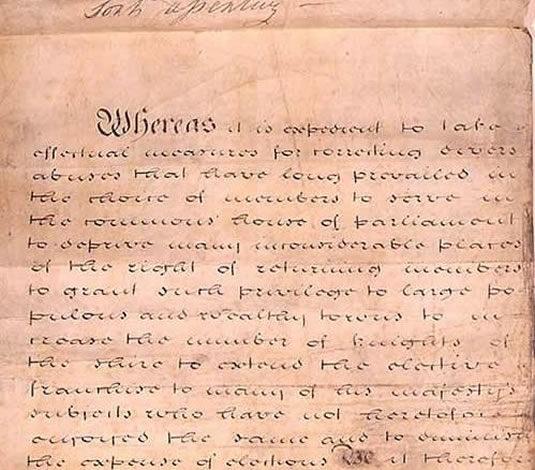 assenting
Whereas it is expedient to take
effectual measures for correcting divers
abuses that have long prevailed in
the choice of members to serve in
the commons house of parliament
to deprive many inconsiderable places
of the right of returning members
to grant such privilege to large po
pulous and wealthy towns to in
crease the number of knights of
the shire to extend the elective
franchise to many of his majestys
subjects who have not heretofore
enjoyed the same and to diminish
the expense of elections Be it therefore